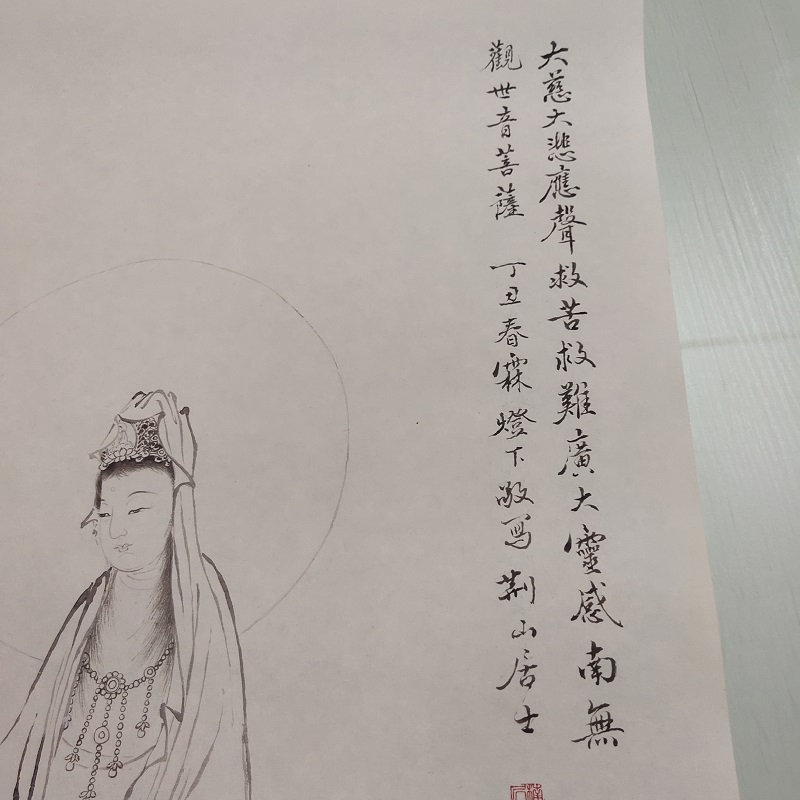 大慈大悲應聲救苦救難廣大靈感南無
觀世音菩薩 丁丑春霖燈下敬写荆山居士